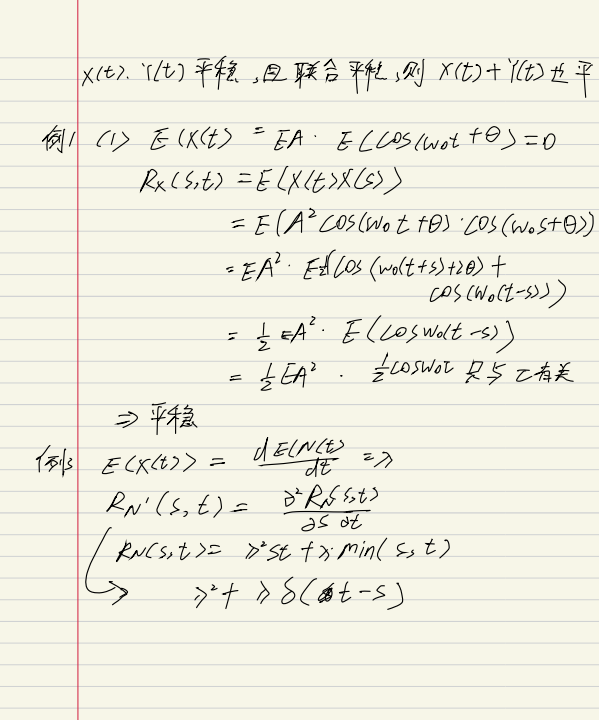 X(t). Y(t) 平稳,且联合平稳,则 X(t)+Y(t)也平
例1 (1) E(X(t) = EA · E(cos(ω₀t+θ)=0
Rx(s,t) = E(X(t)X(s))
= E(A²cos(ω₀t+θ)·cos(ω₀s+θ))
= EA² · E½(cos(ω₀(t+s)+2θ)+
cos(ω₀(t-s)))
= ½ EA² · E(cosω₀(t-s))
= ½EA² · ½cosω₀τ 只与τ有关
⇒ 平稳
例3 E(X(t)) = dE(N(t) / dt = λ
R_N'(s,t) = ∂²R_N(s,t) / ∂s ∂t
R_N(s,t) = λ²st + λ·min(s,t)
λ²+ λδ(t-s)